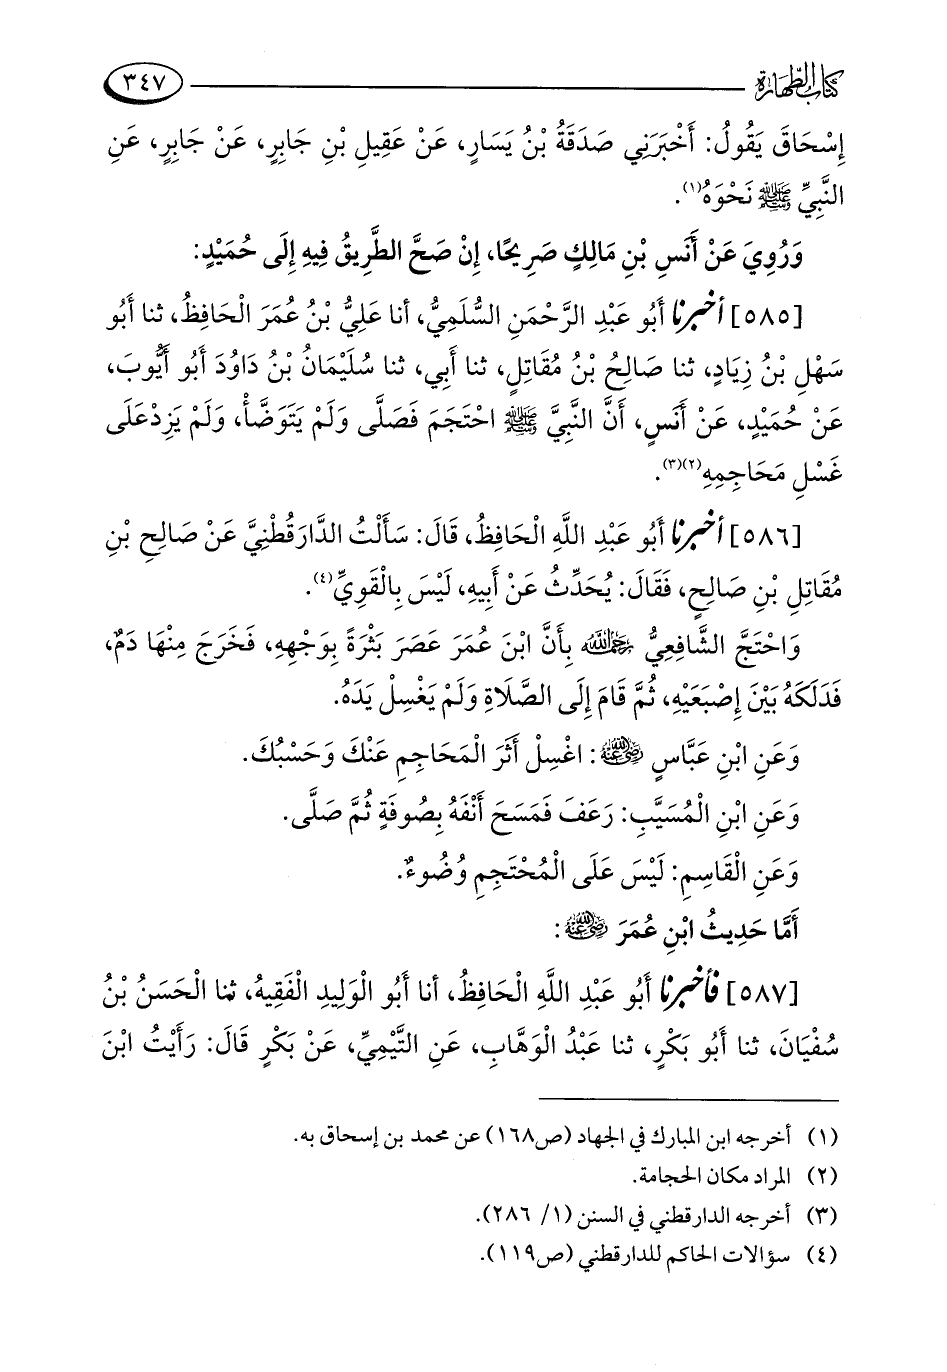 كتاب الطهارة ٣٤٧
إِسْحَاقَ يَقُولُ: أَخْبَرَنِي صَدَقَةُ بْنُ يَسَارٍ، عَنْ عَقِيلِ بْنِ جَابِرٍ، عَنْ جَابِرٍ، عَنِ
النَّبِيِّ ﷺ نَحْوَهُ(١).
وَرُوِيَ عَنْ أَنَسِ بْنِ مَالِكٍ صَرِيحًا، إِنْ صَحَّ الطَّرِيقُ فِيهِ إِلَى حُمَيْدٍ:
[٥٨٥] أخبرنا أَبُو عَبْدِ الرَّحْمَنِ السُّلَمِيُّ، أنا عَلِيُّ بْنُ عُمَرَ الْحَافِظُ، ثنا أَبُو
سَهْلِ بْنُ زِيَادٍ، ثنا صَالِحُ بْنُ مُقَاتِلٍ، ثنا أَبِي، ثنا سُلَيْمَانُ بْنُ دَاوُدَ أَبُو أَيُّوبَ،
عَنْ حُمَيْدٍ، عَنْ أَنَسٍ، أَنَّ النَّبِيَّ ﷺ احْتَجَمَ فَصَلَّى وَلَمْ يَتَوَضَّأْ، وَلَمْ يَزِدْ عَلَى
غَسْلِ مَحَاجِمِهِ(٢)(٣).
[٥٨٦] أخبرنا أَبُو عَبْدِ اللَّهِ الْحَافِظُ، قَالَ: سَأَلْتُ الدَّارَقُطْنِيَّ عَنْ صَالِحِ بْنِ
مُقَاتِلِ بْنِ صَالِحٍ، فَقَالَ: يُحَدِّثُ عَنْ أَبِيهِ، لَيْسَ بِالْقَوِيِّ(٤).
وَاحْتَجَّ الشَّافِعِيُّ رَحِمَهُ اللَّهُ بِأَنَّ ابْنَ عُمَرَ عَصَرَ بَثْرَةً بِوَجْهِهِ، فَخَرَجَ مِنْهَا دَمٌ،
فَدَلَكَهُ بَيْنَ إِصْبَعَيْهِ، ثُمَّ قَامَ إِلَى الصَّلَاةِ وَلَمْ يَغْسِلْ يَدَهُ.
وَعَنِ ابْنِ عَبَّاسٍ رَضِيَ اللَّهُ عَنْهُ: اغْسِلْ أَثَرَ الْمَحَاجِمِ عَنْكَ وَحَسْبُكَ.
وَعَنِ ابْنِ الْمُسَيَّبِ: رَعَفَ فَمَسَحَ أَنْفَهُ بِصُوفَةٍ ثُمَّ صَلَّى.
وَعَنِ الْقَاسِمِ: لَيْسَ عَلَى الْمُحْتَجِمِ وُضُوءٌ.
أَمَّا حَدِيثُ ابْنِ عُمَرَ رَضِيَ اللَّهُ عَنْهُ:
[٥٨٧] فأخبرنا أَبُو عَبْدِ اللَّهِ الْحَافِظُ، أنا أَبُو الْوَلِيدِ الْفَقِيهُ، ثنا الْحَسَنُ بْنُ
سُفْيَانَ، ثنا أَبُو بَكْرٍ، ثنا عَبْدُ الْوَهَّابِ، عَنِ التَّيْمِيِّ، عَنْ بَكْرٍ قَالَ: رَأَيْتُ ابْنَ
(١) أخرجه ابن المبارك في الجهاد (ص١٦٨) عن محمد بن إسحاق به.
(٢) المراد مكان الحجامة.
(٣) أخرجه الدارقطني في السنن (١/ ٢٨٦).
(٤) سؤالات الحاكم للدارقطني (ص١١٩).